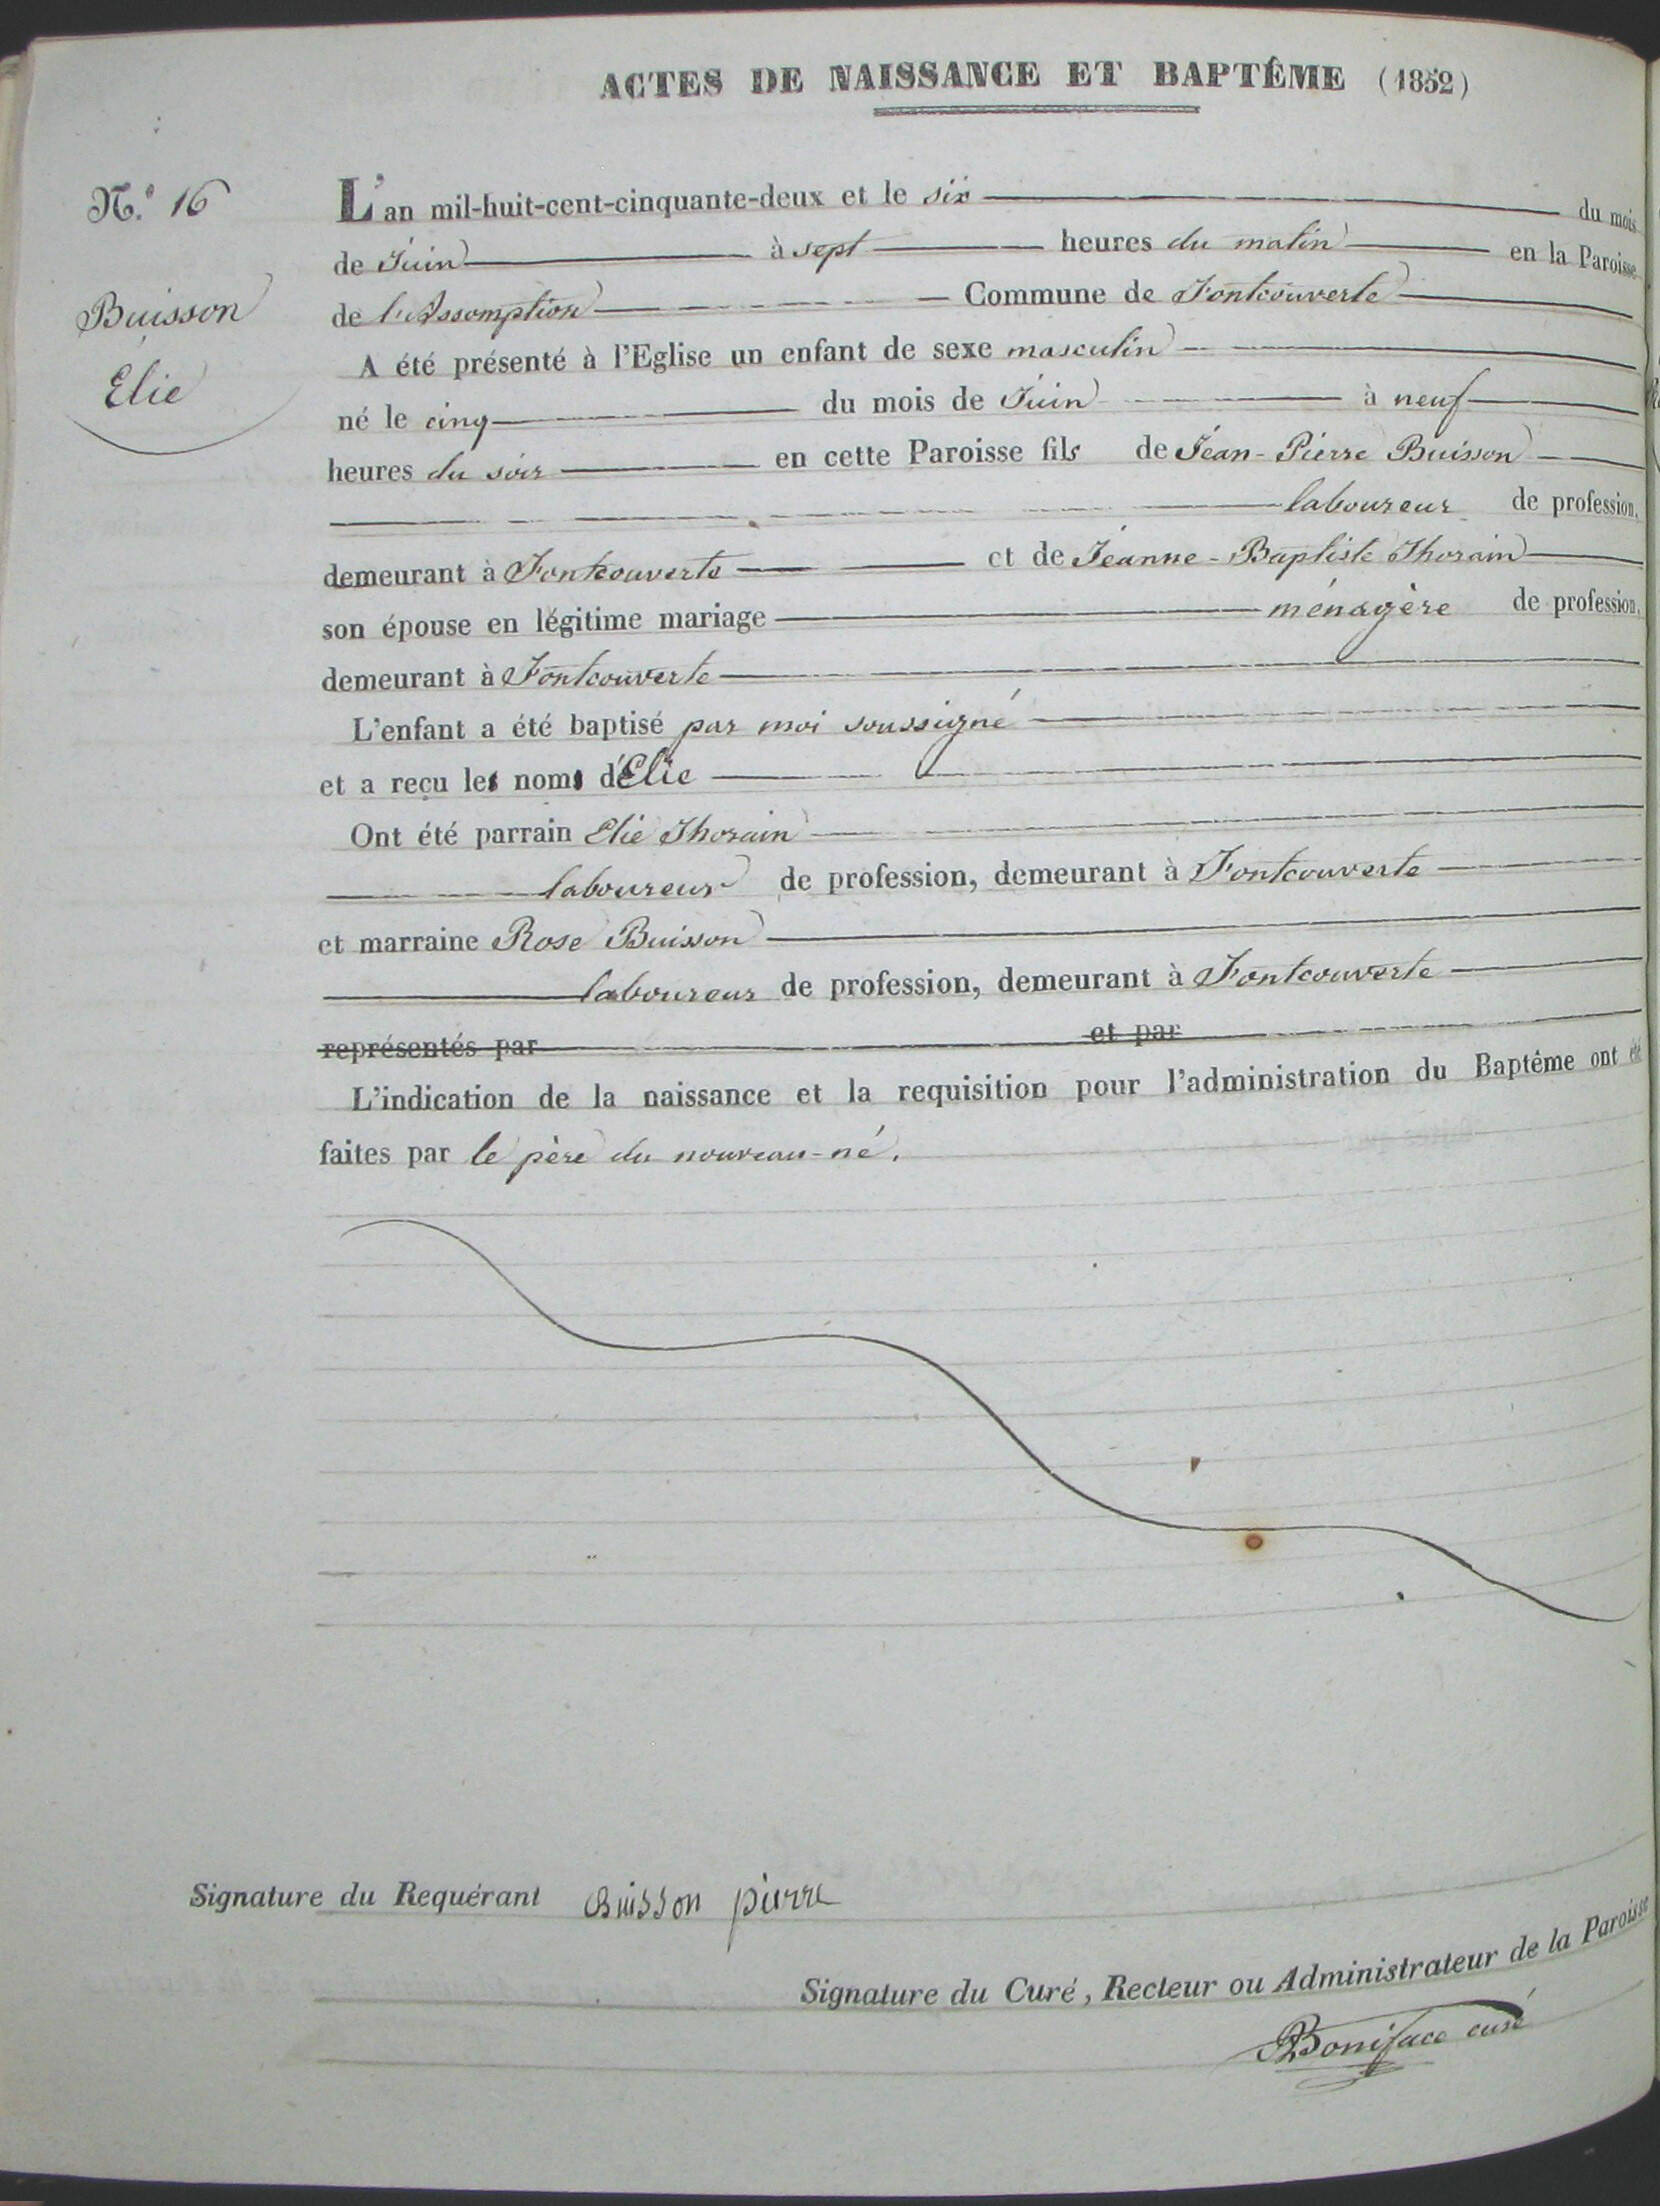 ACTES DE NAISSANCE ET BAPTÊME (1852)
N.° 16
Buisson
Elie
L'an mil-huit-cent-cinquante-deux et le six du mois
de Juin à sept heures du matin en la Paroisse
de l'Assomption Commune de Fontcouverte
A été présenté à l'Eglise un enfant de sexe masculin
né le cinq du mois de Juin à neuf
heures du soir en cette Paroisse fils de Jean-Pierre Buisson
laboureur de profession,
demeurant à Fontcouverte et de Jeanne-Baptiste Thorain
son épouse en légitime mariage ménagère de profession,
demeurant à Fontcouverte
L'enfant a été baptisé par moi soussigné
et a reçu les noms d'Elie
Ont été parrain Elie Thorain
laboureur de profession, demeurant à Fontcouverte
et marraine Rose Buisson
laboureur de profession, demeurant à Fontcouverte
représentés par et par
L'indication de la naissance et la requisition pour l'administration du Baptême ont été
faites par le père du nouveau-né.
Signature du Requérant Buisson pierre
Signature du Curé, Recteur ou Administrateur de la Paroisse
Boniface curé